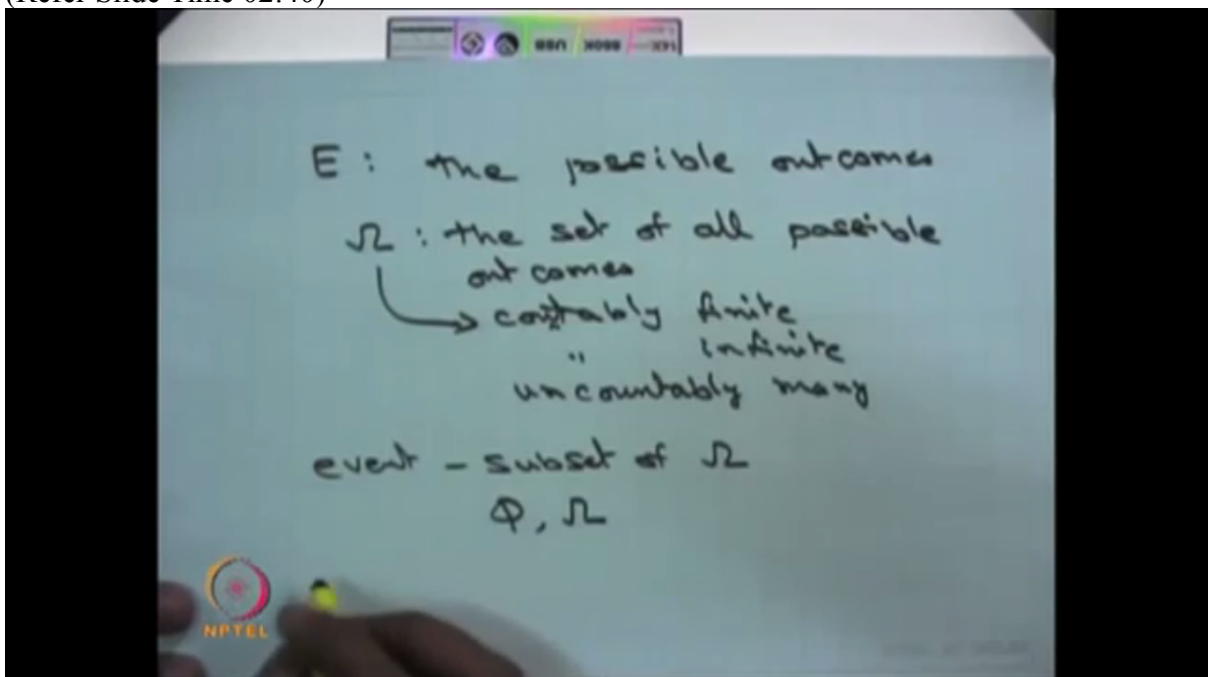 E : the possible outcomes
Ω : the set of all possible
outcomes
→ countably finite
" infinite
uncountably many
event - subset of Ω
Φ, Ω
NPTEL